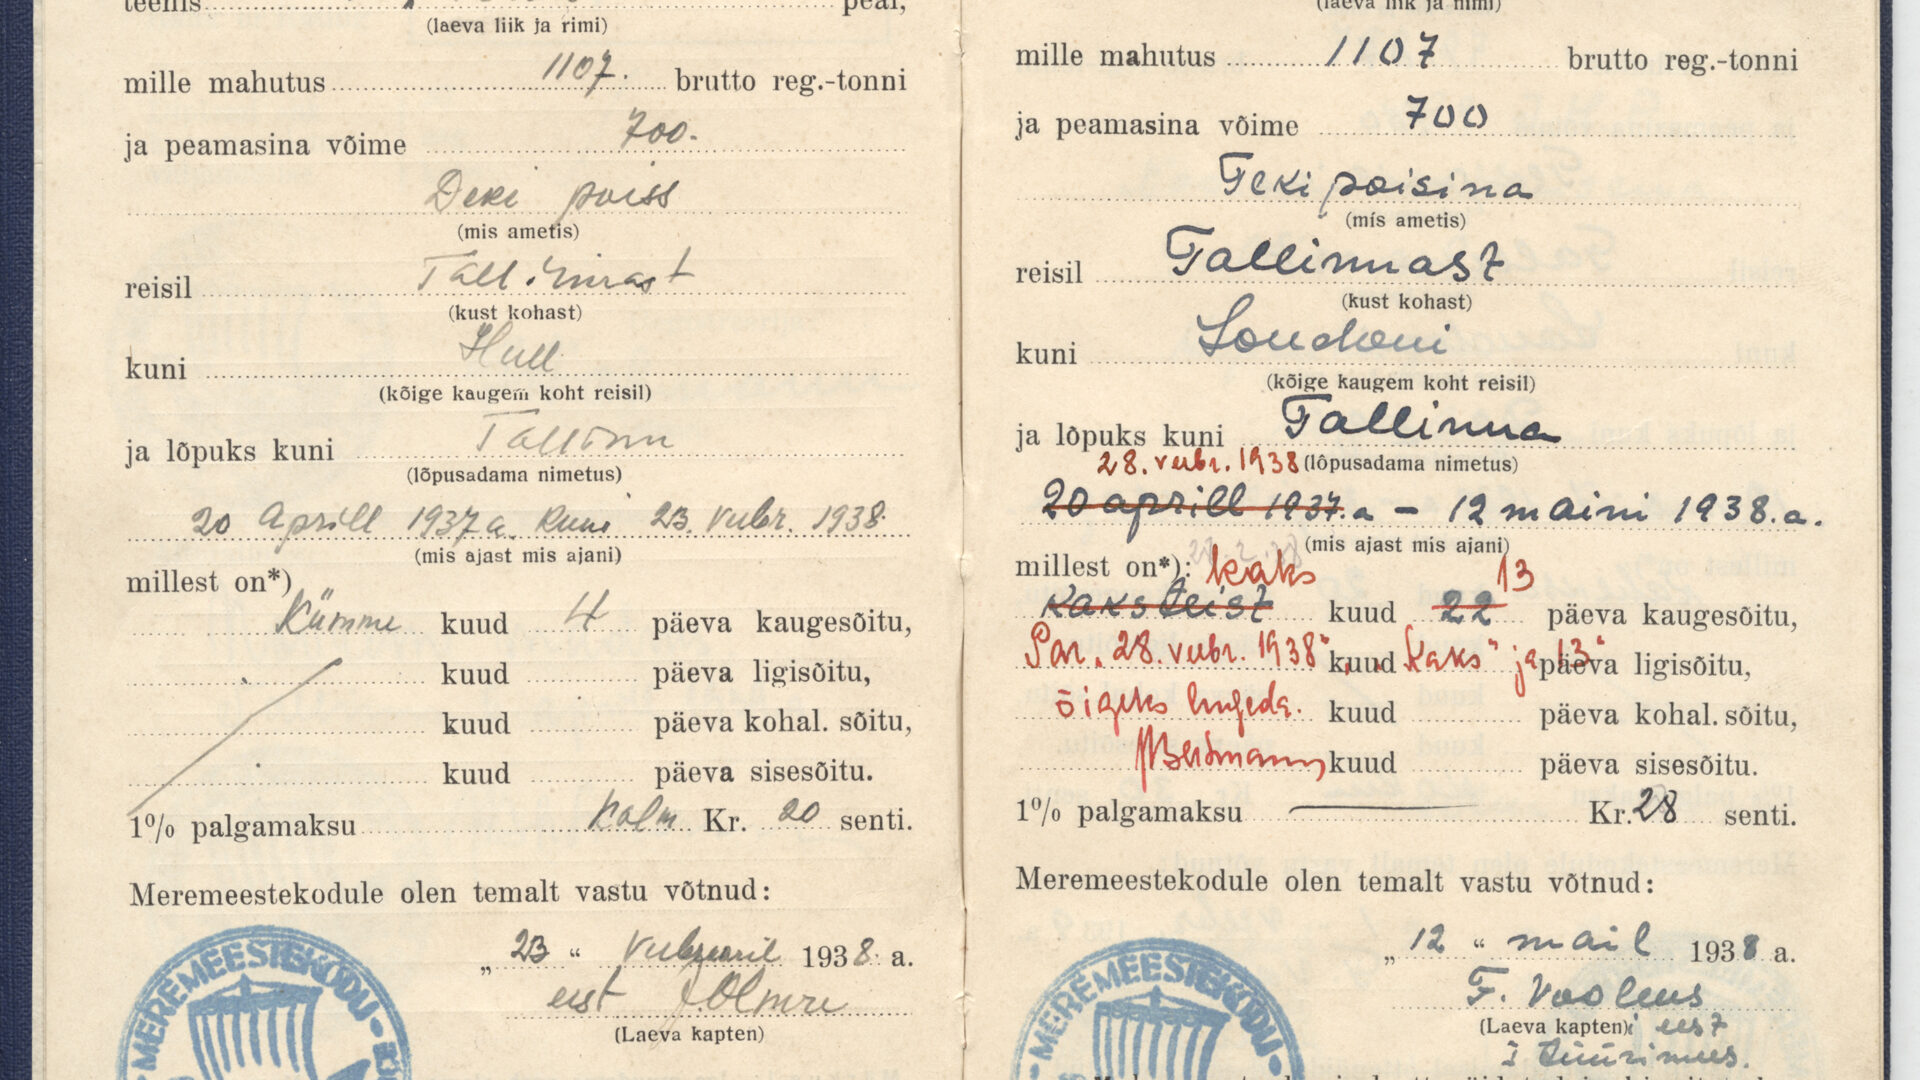 teenis peal,
(laeva liik ja nimi)
mille mahutus 1107. brutto reg.-tonni
ja peamasina võime 700.
Deki poiss
(mis ametis)
reisil Tallinnast
(kust kohast)
kuni Hull
(kõige kaugem koht reisil)
ja lõpuks kuni Tallinn
(lõpusadama nimetus)
20 Aprill 1937 a. kuni 23. veebr. 1938.
(mis ajast mis ajani)
millest on*)
Kümme kuud 4 päeva kaugesõitu,
kuud päeva ligisõitu,
kuud päeva kohal. sõitu,
kuud päeva sisesõitu.
1% palgamaksu Kolm Kr. 20 senti.
Meremeestekodule olen temalt vastu võtnud:
„ 23 “ veebruaril 1938. a.
eest
(Laeva kapten)
MEREMEESTEKODU
(laeva liik ja nimi)
mille mahutus 1107 brutto reg.-tonni
ja peamasina võime 700
Teki poisina
(mis ametis)
reisil Tallinnast
(kust kohast)
kuni Londoni
(kõige kaugem koht reisil)
ja lõpuks kuni Tallinna
28. veebr. 1938 (lõpusadama nimetus)
20 aprill 1937.a – 12 maini 1938.a.
(mis ajast mis ajani)
millest on*): kaks 13
Kaksteist kuud 22 päeva kaugesõitu,
Par. „28. veebr. 1938“, kuud „kaks“ ja „13“ päeva ligisõitu,
õigeks lugeda. kuud päeva kohal. sõitu,
kuud päeva sisesõitu.
1% palgamaksu Kr. 28 senti.
Meremeestekodule olen temalt vastu võtnud:
„ 12 “ mail 1938 a.
F. Vooleus
(Laeva kapten)i eest
I tüürimees.
MEREMEESTEKODU